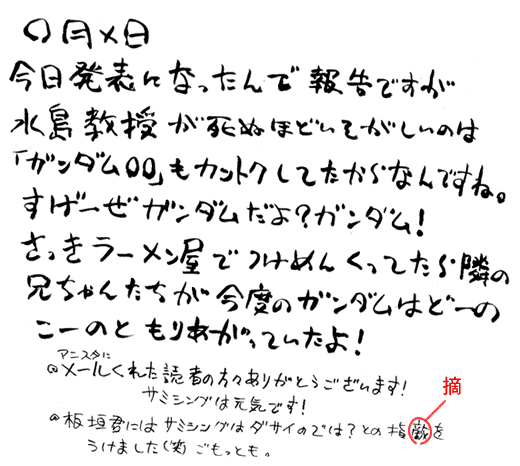 ○月×日
今日発表になったんで報告ですが
水島教授が死ぬほどいそがしいのは
「ガンダム00」もカントクしてたからなんですね。
すげーぜガンダムだよ?ガンダム!
さっきラーメン屋でつけめんくってたら隣の
兄ちゃんたちが今度のガンダムはどーの
こーのともりあがっていたよ!
アニスタに
@メールくれた読者の方々ありがとうございます!
サミシングは元気です!
摘
@板垣君にはサミシングはダサイのでは?との指敵を
うけました(笑)ごもっとも。